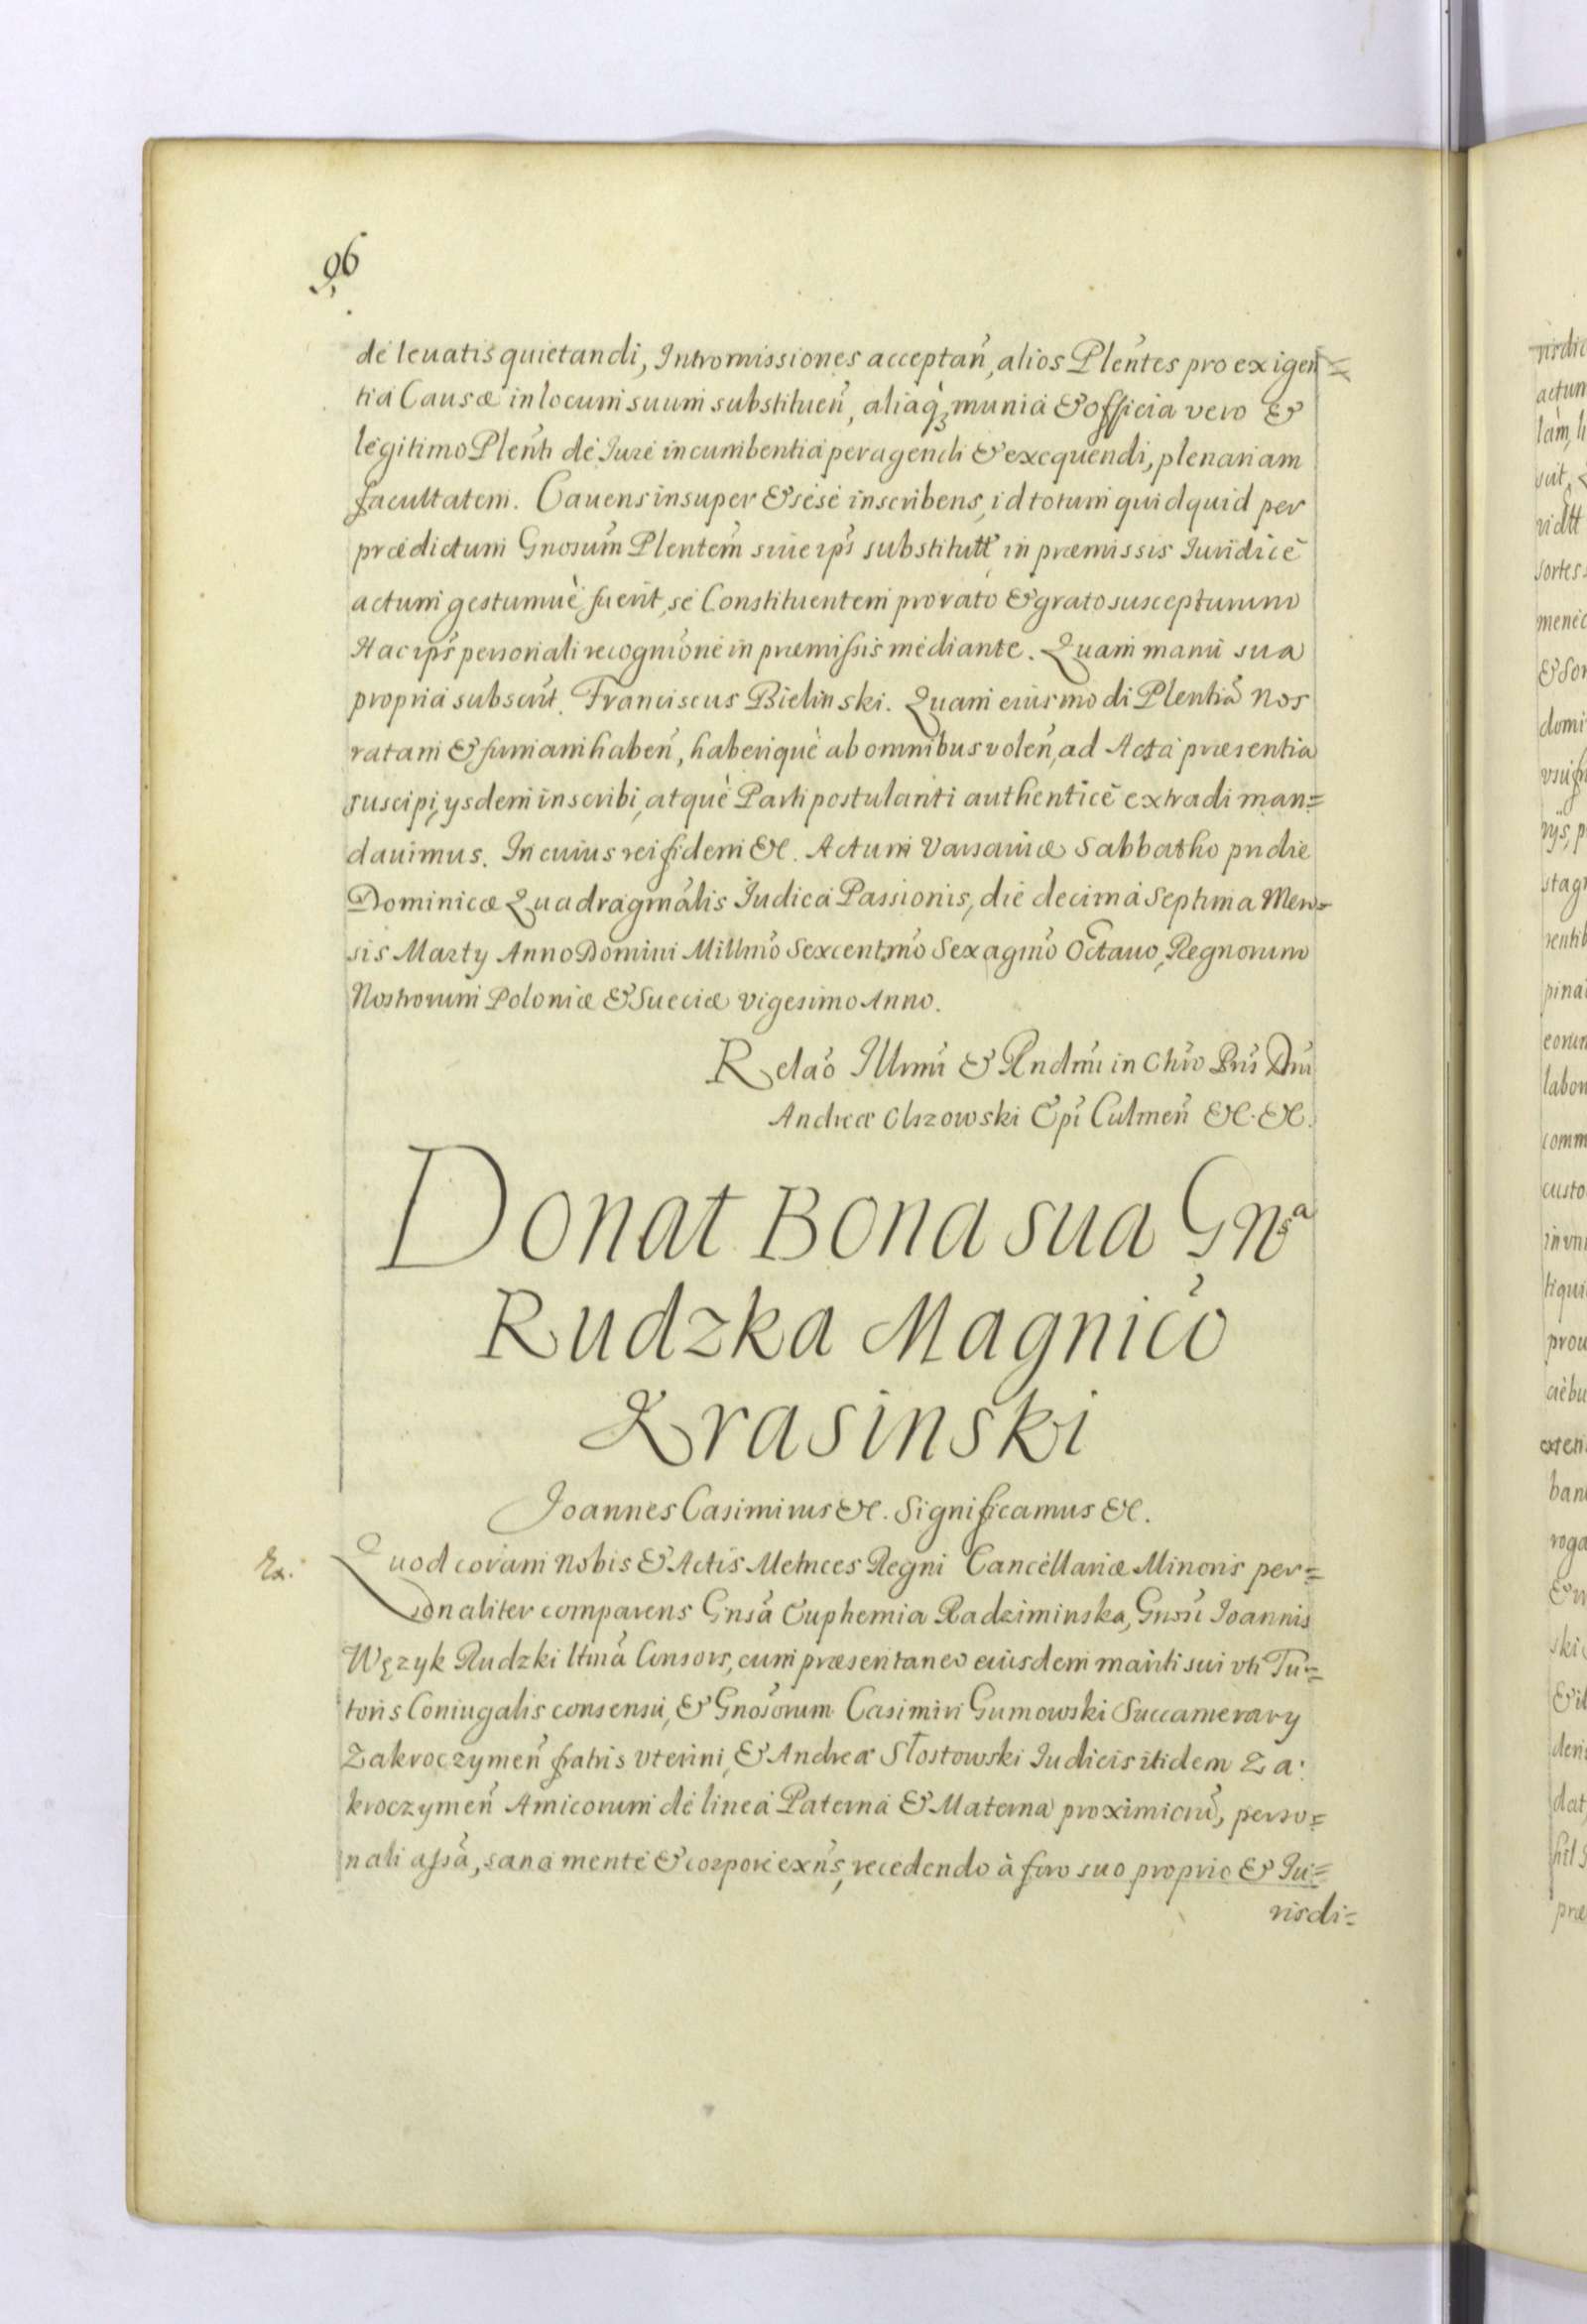 96
de leuatis quietandi, Intromissiones acceptañ, alios Pleñtes pro exigen=
tia Causæ in locum suum substitueñ, aliaqꝫ munia & officia vero &
legitimo Pleñti de Iure incumbentia peragendi & exequendi, plenariam
facultatem. Cauens insuper & sese inscribens, id totum quidquid per
prædictum Gnosum̃ Plentem̃ siue ip̃s substitutt̃ in præmissis Iuridicè
actum gestumuè fuerit, se Constituentem pro rato & grato suscepturum
Hac ip̃s personali recognĩone in præmissis mediante. Quam manu sua
propria subscrit̃. Franciscus Bielinski. Quam eiusmodi Plentiã Nos
ratam & firmam habeñ, haberiquè ab omnibus voleñ, ad Acta præsentia
suscipi, ysdem inscribi, atquè Parti postulanti authenticè extradi man=
dauimus. In cuius rei fidem &c. Actum Varsauiæ Sabbatho pridie
Dominicæ Quadragmãlis Iudica Passionis, die decima Septima Men=
sis Marty Anno Domini Millmõ Sexcentmõ Sexagmõ Octauo, Regnorum
Nostrorum Poloniæ & Sueciæ vigesimo Anno.
Relaõ Illrmĩ & Rndmĩ in Chrõ Pris̃ Dñi
Andreæ Olszowski Epĩ Culmeñ &c. &c.
Donat Bona sua Gnsa
Rudzka Magnicõ
Krasinski
Joannes Casimirus &c. Significamus &c.
Ex.
Quod coram Nobis & Actis Metrices Regni Cancellariæ Minoris per=
sonaliter comparens Gnsã Euphemia Radziminska, Gnsĩ Joannis
Węzyk Rudzki ltmã Consors, cum præsentaneo eiusdem mariti sui vti Tu=
toris Coniugalis consensu, & Gnosõrum Casimiri Gumowski Succamerary
Zakroczymeñ fratris vterini, & Andreæ Słostowski Iudicis itidem Za:
kroczymeñ Amicorum de linea Paterna & Materna proximiorũ, perso=
nali assã, sana mente & corpore exñs, recedendo à foro suo proprio & Iu=
risdi=